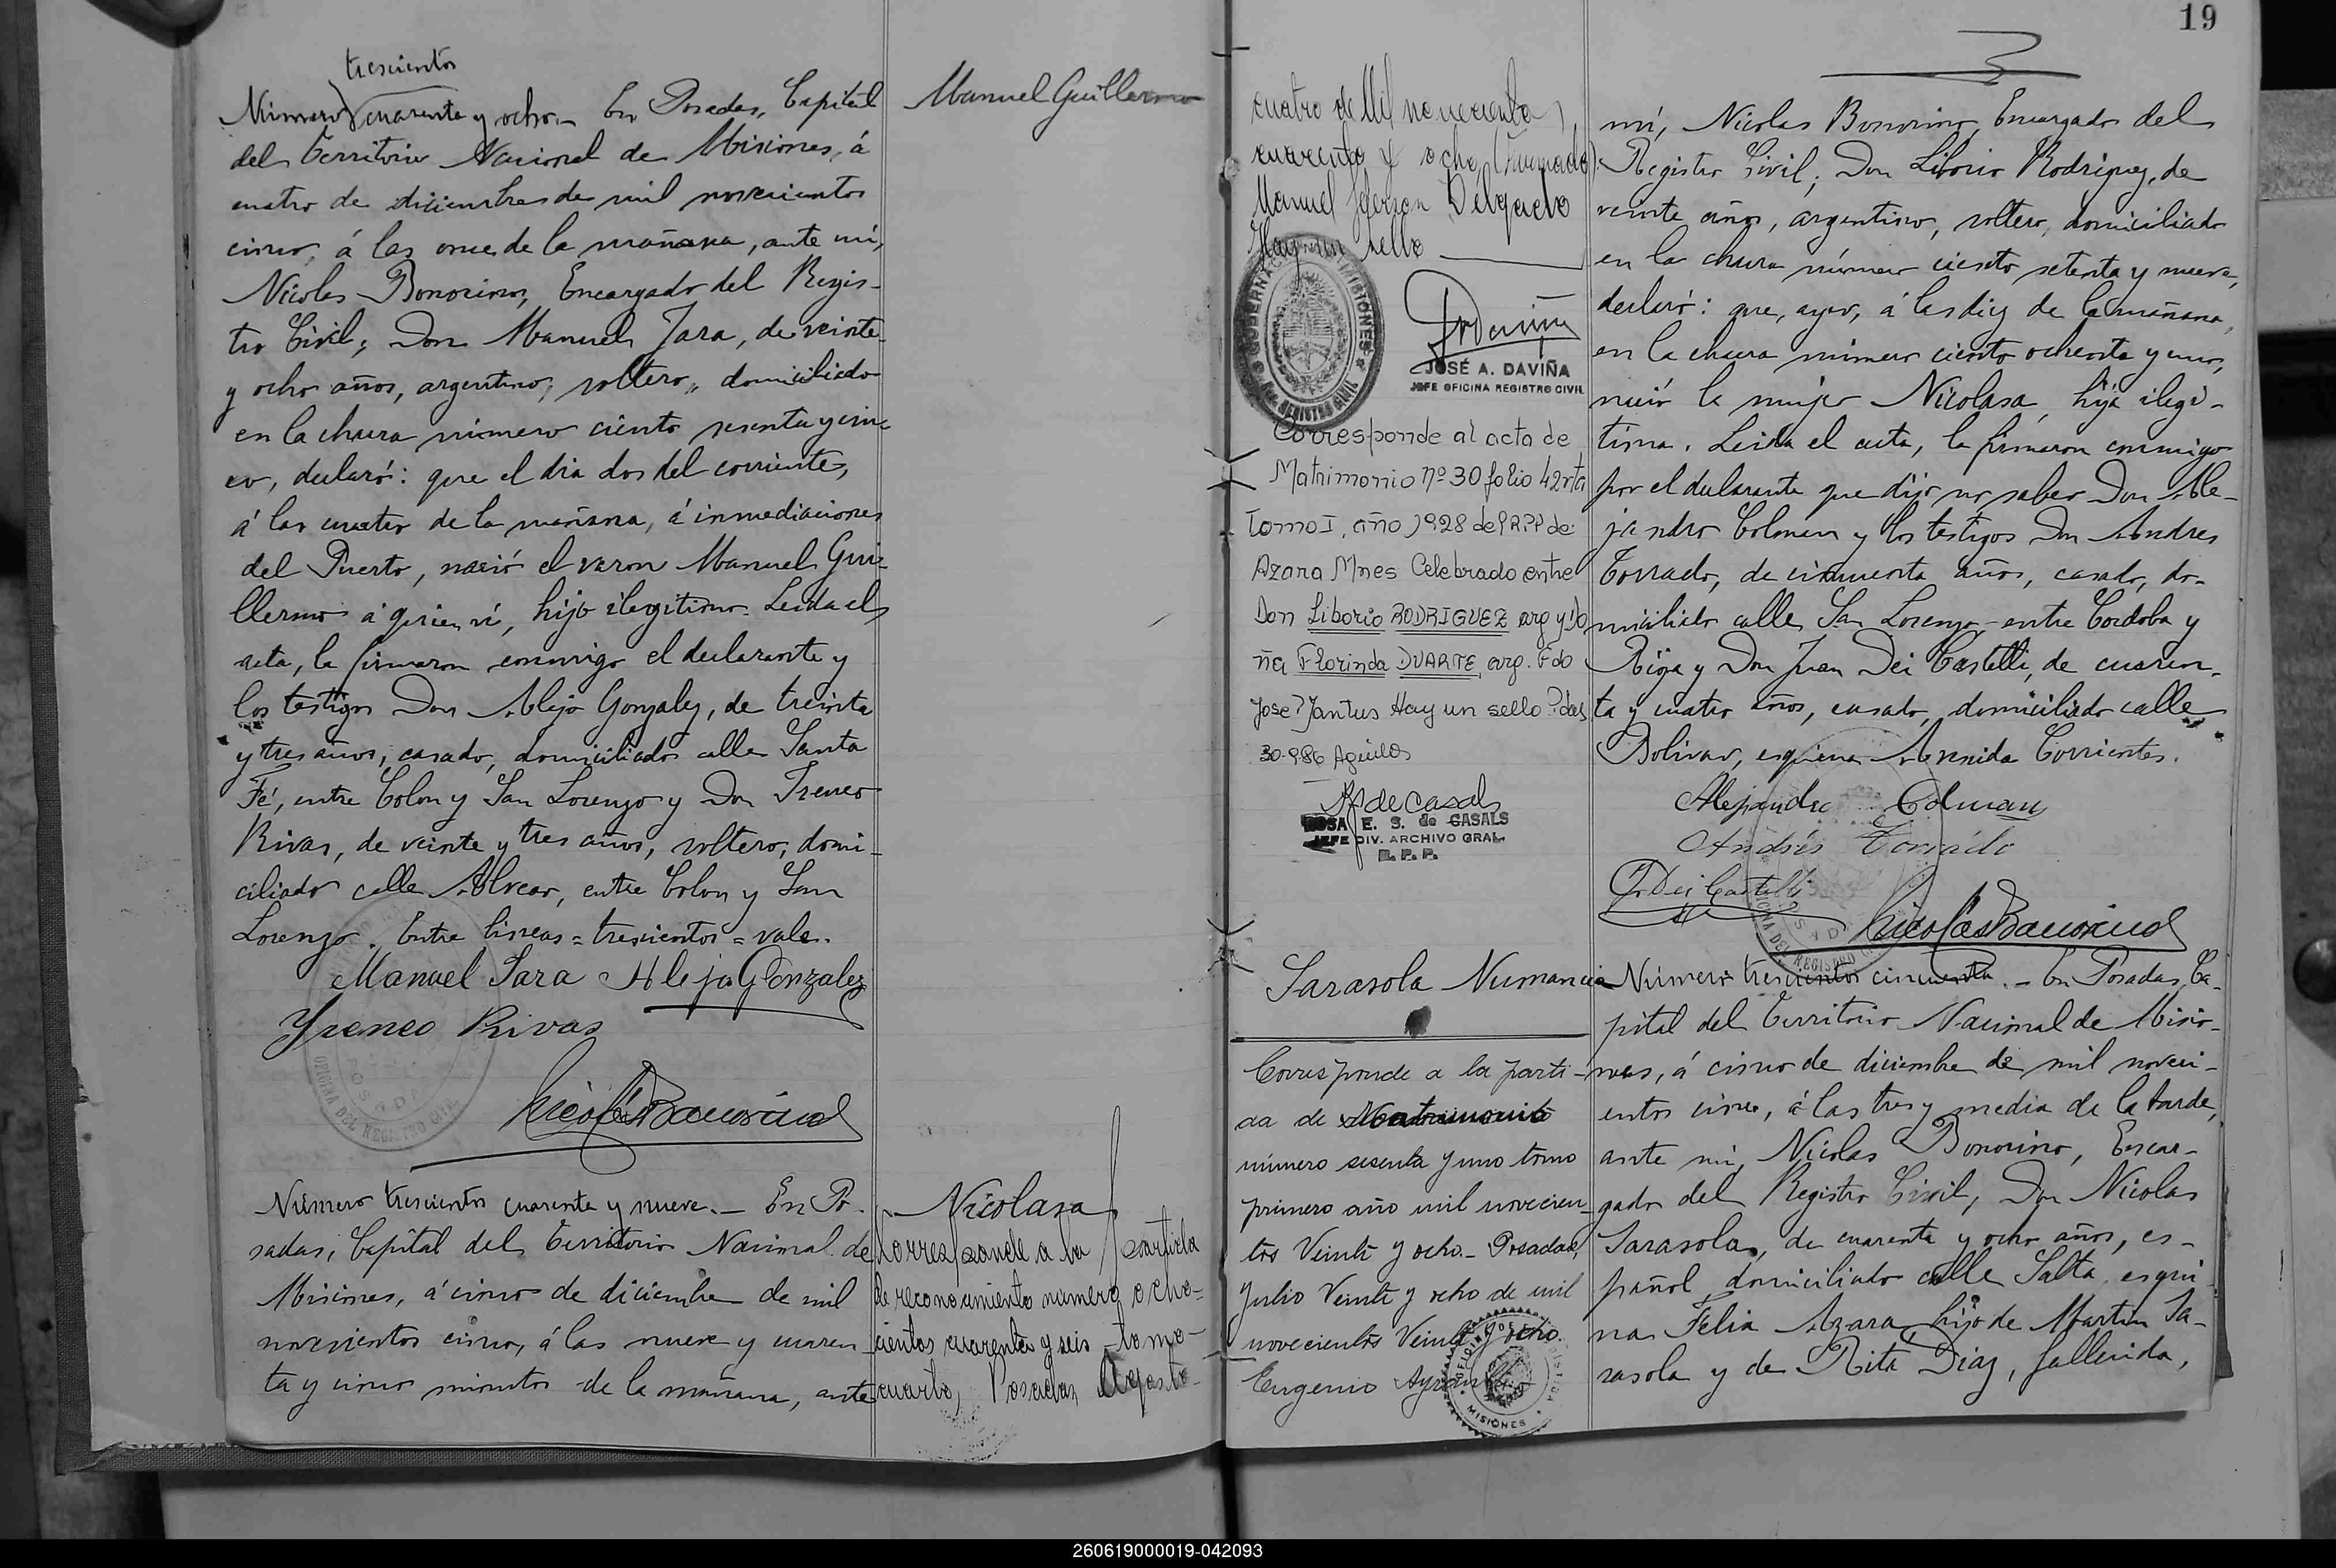 trescientos
Número cuarenta y ocho.- En Posadas, Capital
del Territorio Nacional de Misiones, á
cuatro de diciembre de mil novecientos
cinco, á las once de la mañana, ante mí,
Nicolas Bonorino, Encargado del Regis-
tro Civil; Don Manuel Jara, de veinte
y ocho años, argentino, soltero, domiciliado
en la chacra número ciento sesenta y cin-
co, declaró: que el dia dos del corriente,
á las cuatro de la mañana, á inmediaciones
del Puerto, nació el varon Manuel Gui-
llermo á quien ví, hijo ilegitimo. Leida el
acta, la firmaron conmigo el declarante y
los testigos Don Alejo Gonzalez, de treinta
y tres años, casado, domiciliado calle Santa
Fé, entre Colon y San Lorenzo y Don Ireneo
Rivas, de veinte y tres años, soltero, domi-
ciliado calle Alvear, entre Colon y San
Lorenzo. Entre lineas = trescientos = vale.
Manuel Jara Alejo Gonzalez
Yreneo Rivas
Nicolás Bonorino
POSADAS
OFICINA DEL REGISTRO CIVIL
Manuel Guillermo
Número trescientos cuarenta y nueve.- En Po-
sadas, Capital del Territorio Nacional de
Misiones, á cinco de diciembre de mil
novecientos cinco, á las nueve y cuaren-
ta y cinco minutos de la mañana, ante
Nicolasa
Corresponde a la partida
de reconocimiento numero ocho-
cientos cuarenta y seis tomo
cuarto, Posadas Agosto
19
cuatro de Mil novecientos
cuarenta y ocho (Firmado):
Manuel Delgado
Hay un sello
GOBERNACION DE MISIONES
REGISTRO CIVIL
JOSÉ A. DAVIÑA
JEFE OFICINA REGISTRO CIVIL
Corresponde al acta de
Matrimonio nº 30 folio 42vta
tomo I, año 1928 del R.P.P de
Azara Mnes Celebrado entre
Don Liborio RODRIGUEZ arg y Do
ña Florinda DUARTE, arg. Fdo
Jose Hay un sello Pdas
30-9-86
de Casals
ROSA E. S. de CASALS
JEFE DIV. ARCHIVO GRAL.
R. P. P.
mí, Nicolas Bonorino, Encargado del
Registro Civil; Don Liborio Rodriguez, de
veinte años, argentino, soltero, domiciliado
en la chacra número ciento setenta y nueve,
declaró: que, ayer, á las diez de la mañana,
en la chacra número ciento ochenta y uno,
nació la mujer Nicolasa, hija ilegi-
tima. Leida el acta, la firmaron conmigo
por el declarante que dijo no saber Don Ale-
jandro Colman y los testigos Don Andres
Torrado, de cincuenta años, casado, do-
miciliado calle San Lorenzo entre Cordoba y
Rioja y Don Juan Dei Castelli, de cuaren-
ta y cuatro años, casado, domiciliado calle
Bolivar, esquina Avenida Corrientes.
Alejandro Colman
Andrés Torrado
J. Dei Castelli
Nicolás Bonorino
OFICINA DEL REGISTRO CIVIL
POSADAS
Sarasola Numancia
Corresponde a la parti-
da de Matrimonio
número sesenta y uno tomo
primero año mil novecien-
tos Veinte y ocho.- Posadas,
Julio Veinte y ocho de mil
novecientos Veinte y ocho.
Eugenio
MISIONES
Número trescientos cincuenta.- En Posadas, Ca-
pital del Territorio Nacional de Misio-
nes, á cinco de diciembre de mil noveci-
entos cinco, á las tres y media de la tarde,
ante mí, Nicolas Bonorino, Encar-
gado del Registro Civil, Don Nicolas
Sarasola, de cuarenta y ocho años, es-
pañol, domiciliado calle Salta, esqui-
na Felix Azara, hijo de Martin Sa-
rasola y de Rita Diaz, fallecida,
260619000019-042093